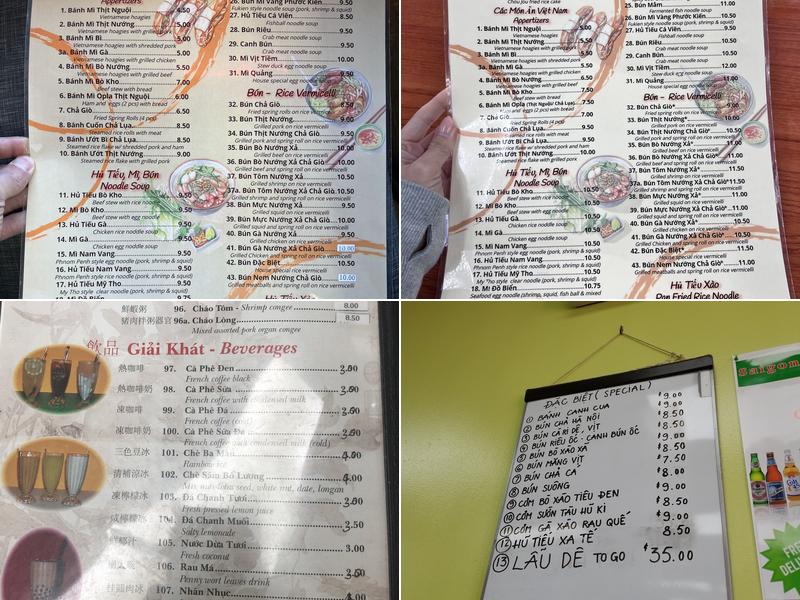 Appetizers
1. Bánh Mì Thịt Nguội 4.50
Vietnamese hoagies
2. Bánh Mì Bì 4.50
Vietnamese hoagies with shredded pork
3a. Bánh Mì Gà 5.00
Vietnamese hoagies with grilled chicken
4. Bánh Mì Bò Nướng 5.50
Vietnamese hoagies with grilled beef
5. Bánh Mì Bò Kho 7.00
Beef stew with bread
6. Bánh Mì Opla Thịt Nguội 6.00
Ham and eggs (2 pcs) with bread
7. Chả Giò 6.50
Fried Spring Rolls (4 pcs)
8. Bánh Cuốn Chả Lụa 8.50
Steamed rice rolls with meat
9. Bánh Ướt Bì Chả Lụa 8.50
Steamed rice flake w/ shredded pork and ham
10. Bánh Ướt Thịt Nướng 9.00
Steamed rice flake with grilled pork
Hủ Tiếu, Mì, Bún
Noodle Soup
11. Hủ Tiếu Bò Kho 9.50
Beef stew with rice noodle
12. Mì Bò Kho 9.50
Beef stew with egg noodle
13. Hủ Tiếu Gà 9.50
Chicken rice noodle
14. Mì Gà 9.50
Chicken egg noodle soup
15. Mì Nam Vang 9.50
Phnom Penh style egg noodle (pork, shrimp & squid)
16. Hủ Tiếu Nam Vang 9.50
Phnom Penh style rice noodle (pork, shrimp & squid)
17. Hủ Tiếu Mỹ Tho 9.50
My Tho style clear noodle (pork, shrimp & squid)
26. Bún Mì Vàng Phước Kiến 9.50
Fukien style noodle soup (pork, shrimp & squid)
27. Hủ Tiếu Cá Viên 8.50
Fishball noodle soup
28. Bún Riêu 9.50
Crab meat noodle soup
29. Canh Bún 9.50
Crab meat noodle soup
30. Mì Vịt Tiềm 10.00
Stew duck egg noodle soup
31. Mì Quảng 9.50
House special egg noodle
Bún - Rice Vermicelli
32. Bún Chả Giò 8.50
Fried spring rolls on rice vermicelli
33. Bún Thịt Nướng 9.00
Grilled pork on rice vermicelli
34. Bún Thịt Nướng Chả Giò 9.50
Grilled pork and spring roll on rice vermicelli
35. Bún Bò Nướng Xả 10.00
Grilled beef on rice vermicelli
36. Bún Bò Nướng Xả Chả Giò 10.50
Grilled beef and spring roll on rice vermicelli
37. Bún Tôm Nướng Xả 10.00
Grilled shrimp on rice vermicelli
37a. Bún Tôm Nướng Xả Chả Giò 10.50
Grilled shrimp and spring roll on rice vermicelli
38. Bún Mực Nướng Xả 10.50
Grilled squid on rice vermicelli
39. Bún Mực Nướng Xả Chả Giò 10.00
Grilled squid and spring roll on rice vermicelli
40. Bún Gà Nướng Xả 9.50
Grilled chicken on rice vermicelli
41. Bún Gà Nướng Xả Chả Giò 10.00
Grilled chicken and spring roll on rice vermicelli
42. Bún Đặc Biệt 10.50
House special rice vermicelli
43. Bún Nem Nướng Chả Giò 10.00
Grilled meatballs and spring roll on rice vermicelli
Chou Jou fried rice cake
Các Món Ăn Việt Nam
Appetizers
1. Bánh Mì Thịt Nguội 5.00
Vietnamese hoagies
2. Bánh Mì Bì 5.00
Vietnamese hoagies with shredded pork
3a. Bánh Mì Gà
Vietnamese hoagies with grilled chicken
4. Bánh Mì Bò Nướng
Vietnamese hoagies with grilled beef
5. Bánh Mì Bò Kho
Beef stew with bread
6. Bánh Mì Opla (Thịt Nguội/ Chả Lụa) 7.50
Ham and eggs (2 pcs) with bread
7. Chả Giò
Fried Spring Rolls
8. Bánh Cuốn Chả Lụa
Steamed rice rolls with meat
9. Bánh Ướt Bì Chả Lụa
Steamed rice flake w/ shredded pork and ham
10. Bánh Ướt Thịt Nướng 10.00
Steamed rice flake with grilled pork
Hủ Tiếu, Mì, Bún
Noodle Soup
11. Hủ Tiếu Bò Kho 10.50
Beef stew with rice noodle
12. Mì Bò Kho
Beef stew with egg noodle
13. Hủ Tiếu Gà
Chicken rice noodle
14. Mì Gà
Chicken egg noodle soup
15. Mì Nam Vang 10.50
Phnom Penh style egg noodle (pork, shrimp & squid)
16. Hủ Tiếu Nam Vang 10.50
Phnom Penh style rice noodle (pork, shrimp & squid)
17. Hủ Tiếu Mỹ Tho 10.50
My Tho style clear noodle (pork, shrimp & squid)
18. Mì Đồ Biển 10.75
Seafood egg noodle (shrimp, squid, fish ball & mixed
25. Bún Mắm 11.00
Fermented fish noodle soup
26. Bún Mì Vàng Phước Kiến
Fukien style noodle soup (pork, shrimp & squid)
27. Hủ Tiếu Cá Viên 9.50
Fishball noodle soup
28. Bún Riêu
Crab meat noodle soup
29. Canh Bún 10.50
Crab meat noodle soup
30. Mì Vịt Tiềm 12.50
Stew duck egg noodle soup
31. Mì Quảng 11.00
House special egg noodle
Bún - Rice Vermicelli
32. Bún Chả Giò* 9.00
Fried spring rolls on rice vermicelli
33. Bún Thịt Nướng*
Grilled pork on rice vermicelli
34. Bún Thịt Nướng Chả Giò* 10.50
Grilled pork and spring roll on rice vermicelli
35. Bún Bò Nướng Xả* 11.00
Grilled beef on rice vermicelli
36. Bún Bò Nướng Xả Chả Giò* 11.00
Grilled beef and spring roll on rice vermicelli
37. Bún Tôm Nướng Xả* 11.00
Grilled shrimp on rice vermicelli
37a. Bún Tôm Nướng Xả Chả Giò* 11.50
Grilled shrimp and spring roll on rice vermicelli
38. Bún Mực Nướng Xả* 11.00
Grilled squid on rice vermicelli
39. Bún Mực Nướng Xả Chả Giò* 11.00
Grilled squid and spring roll on rice vermicelli
40. Bún Gà Nướng Xả* 10.50
Grilled chicken on rice vermicelli
41. Bún Gà Nướng Xả Chả Giò* 10.50
Grilled chicken and spring roll on rice vermicelli
42. Bún Đặc Biệt* 11.50
House special rice vermicelli
43. Bún Nem Nướng Chả Giò* 11.00
Grilled meatballs and spring roll on rice vermicelli
Hủ Tiếu Xào
Pan Fried Rice Noodle
鮮蝦粥 96. Cháo Tôm - Shrimp congee 8.00
猪肉拌粥器官 96a. Cháo Lòng 8.50
Mixed assorted pork organ congee
飲品 Giải Khát - Beverages
熱咖啡 97. Cà Phê Đen
French coffee black
熱咖啡奶 98. Cà Phê Sữa
French coffee with condensed milk
凍咖啡 99. Cà Phê Đá
French coffee (cold)
凍咖啡奶 100. Cà Phê Sữa Đá
French coffee with condensed milk (cold)
三色豆冰 101. Chè Ba Màu
Rainbow ice
清補涼冰 102. Chè Sâm Bổ Lượng
Mix nuts-lotus seed, white nut, date, longan
凍檸檬水 103. Đá Chanh Tươi
Fresh pressed lemon juice
咸檸檬水 104. Đá Chanh Muối
Salty lemonade
鮮椰汁 105. Nước Dừa Tươi 3.00
Fresh coconut
106. Rau Má
Penny wort leaves drink
桂圓肉冰 107. Nhãn Nhục
ĐẶC BIỆT (SPECIAL)
① BÁNH CANH CUA $9.00
② BÚN CHẢ HÀ NỘI 9.00
③ BÚN CÀRI DÊ, VỊT $8.50
④ BÚN RIÊU ỐC - CANH BÚN ỐC $9.00
⑤ BÚN BÒ XÀO XẢ $8.50
⑥ BÚN MĂNG VỊT $7.50
⑦ BÚN CHẢ CÁ 8.00
⑧ BÚN SUÔNG $9.00
⑨ CƠM BÒ XÀO TIÊU ĐEN $8.50
⑩ CƠM SƯỜN TÀU HŨ KÌ $9.00
⑪ CƠM GÀ XÀO RAU QUẾ 8.50
⑫ HỦ TIẾU XA TẾ
⑬ LẨU DÊ TO GO $35.00
Saigon
FREE